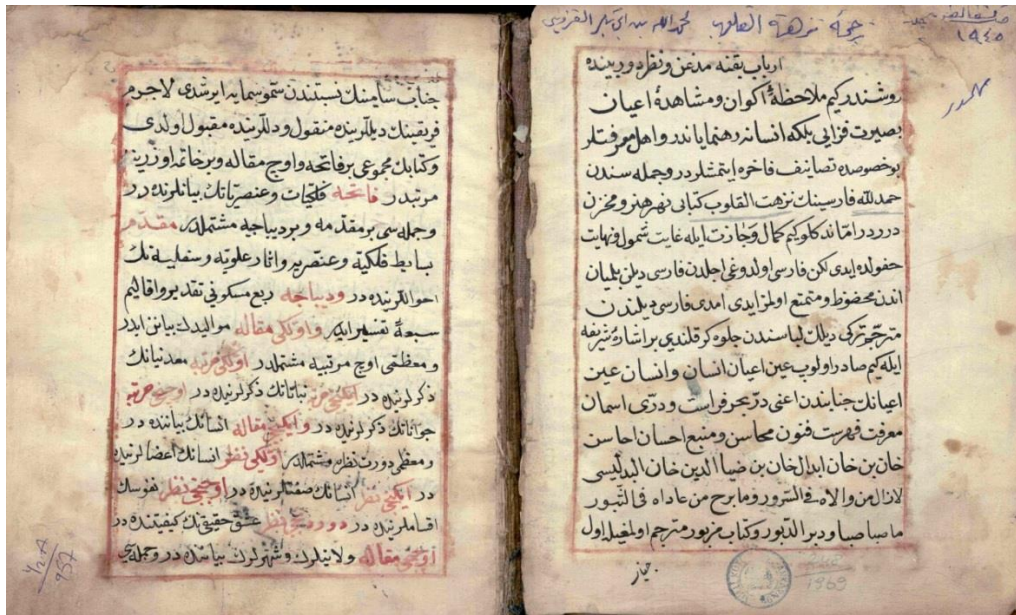 ترجمة نزهة القلوب لحمد الله بن ابى بكر القزوينى
١٩٤٥
ارباب يقنه مدعن ونظر دوربينده
روشندر كيم ملاحظهٔ اكوان ومشاهدهٔ اعيان
بصيرت فزايى بلكه انسانه رهنماياندر واهل معرفتلر
بو خصوصده تصانيف فاخره ايتمشلردر وجمله سندن
حمد الله فارسينك نزهت القلوب كتابى نهر هنر ومخزن
درر در امّا ند كلو كيم كمال وجازت ايله غايت شمول ونهايت
حفولده ايدى لكن فارسى اولدوغى اجلدن فارسى ديلن بليان
اندن محضوظ ومتمتع اولمز ايدى امدى فارسى ديلندن
مترجم تركى ديلك لباسندن جلوه كر قلندى بر اشارهٔ شريفه
ايله كيم صادر اولوب عين اعيان انسان وانسان عين
اعيانك جنابندن اعنى درّ بحر فراست ودرّى اسمان
معرفت فهرست فنون محاسن ومنبع احسان احاسن
خان بن خان ابدال خان بن ضيا الدين خان البدليسى
لازال من والاه فى السرور وما برح من عاداه فى الثبور
ما صبا صبا ودبر الدبور وكتاب مزبور مترجم اولمغله اول
جناب
1969
جناب سامينك نسبتندن سموّ سمايه ايرشدى لاجرم
فريقينك ديللرينده منقول ودللرينده مقبول اولدى
وكتابك مجموعى بر فاتحه واوج مقاله وبر خاتمه اوزرينه
مرتبدر فاتحه فلكيات وعنصرياتك بيانلرنده در
وجمله سى بر مقدمه و بر ديباجه مشتملدر مقدمه
بسايط فلكية وعنصريه واثار علويه وسفليه نك
احواللرنده در وديباجه ربع مسكونى تقدير واقاليم
سبعهٔ تفسير ايلر واولكى مقاله مواليدك بيانن ايدر
ومعظمى اوچ مرتبيه مشتملدر اولكى مرتبه معدنياتك
ذكرلرنده در ايكنجى مرتبه نباتاتك ذكرلرنده در اوچنجى مرتبه
حيواناتك ذكرلرنده در وايكنجى مقاله انسانك بياننده در
ومعظمى دورت نظره مشتملدر اولكى نظر انسانك اعضالرنده
در ايكنجى نظر انسانك صفتلرنده در اوچنجى نظر نفوسك
اقساملرنده در دوردنجى نظر عشق حقيقينك كيفيتنده در
اوچنجى مقاله ولايتلرك وشهرلرك بياننده در وجمله سى
957